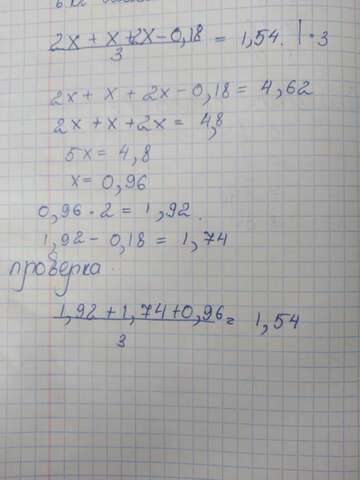 2x + x + 2x - 0,18 / 3 = 1,54. | · 3
2x + x + 2x - 0,18 = 4,62
2x + x + 2x = 4,8
5x = 4,8
x = 0,96
0,96 · 2 = 1,92.
1,92 - 0,18 = 1,74
проверка.
1,92 + 1,74 + 0,96 / 3 = 1,54